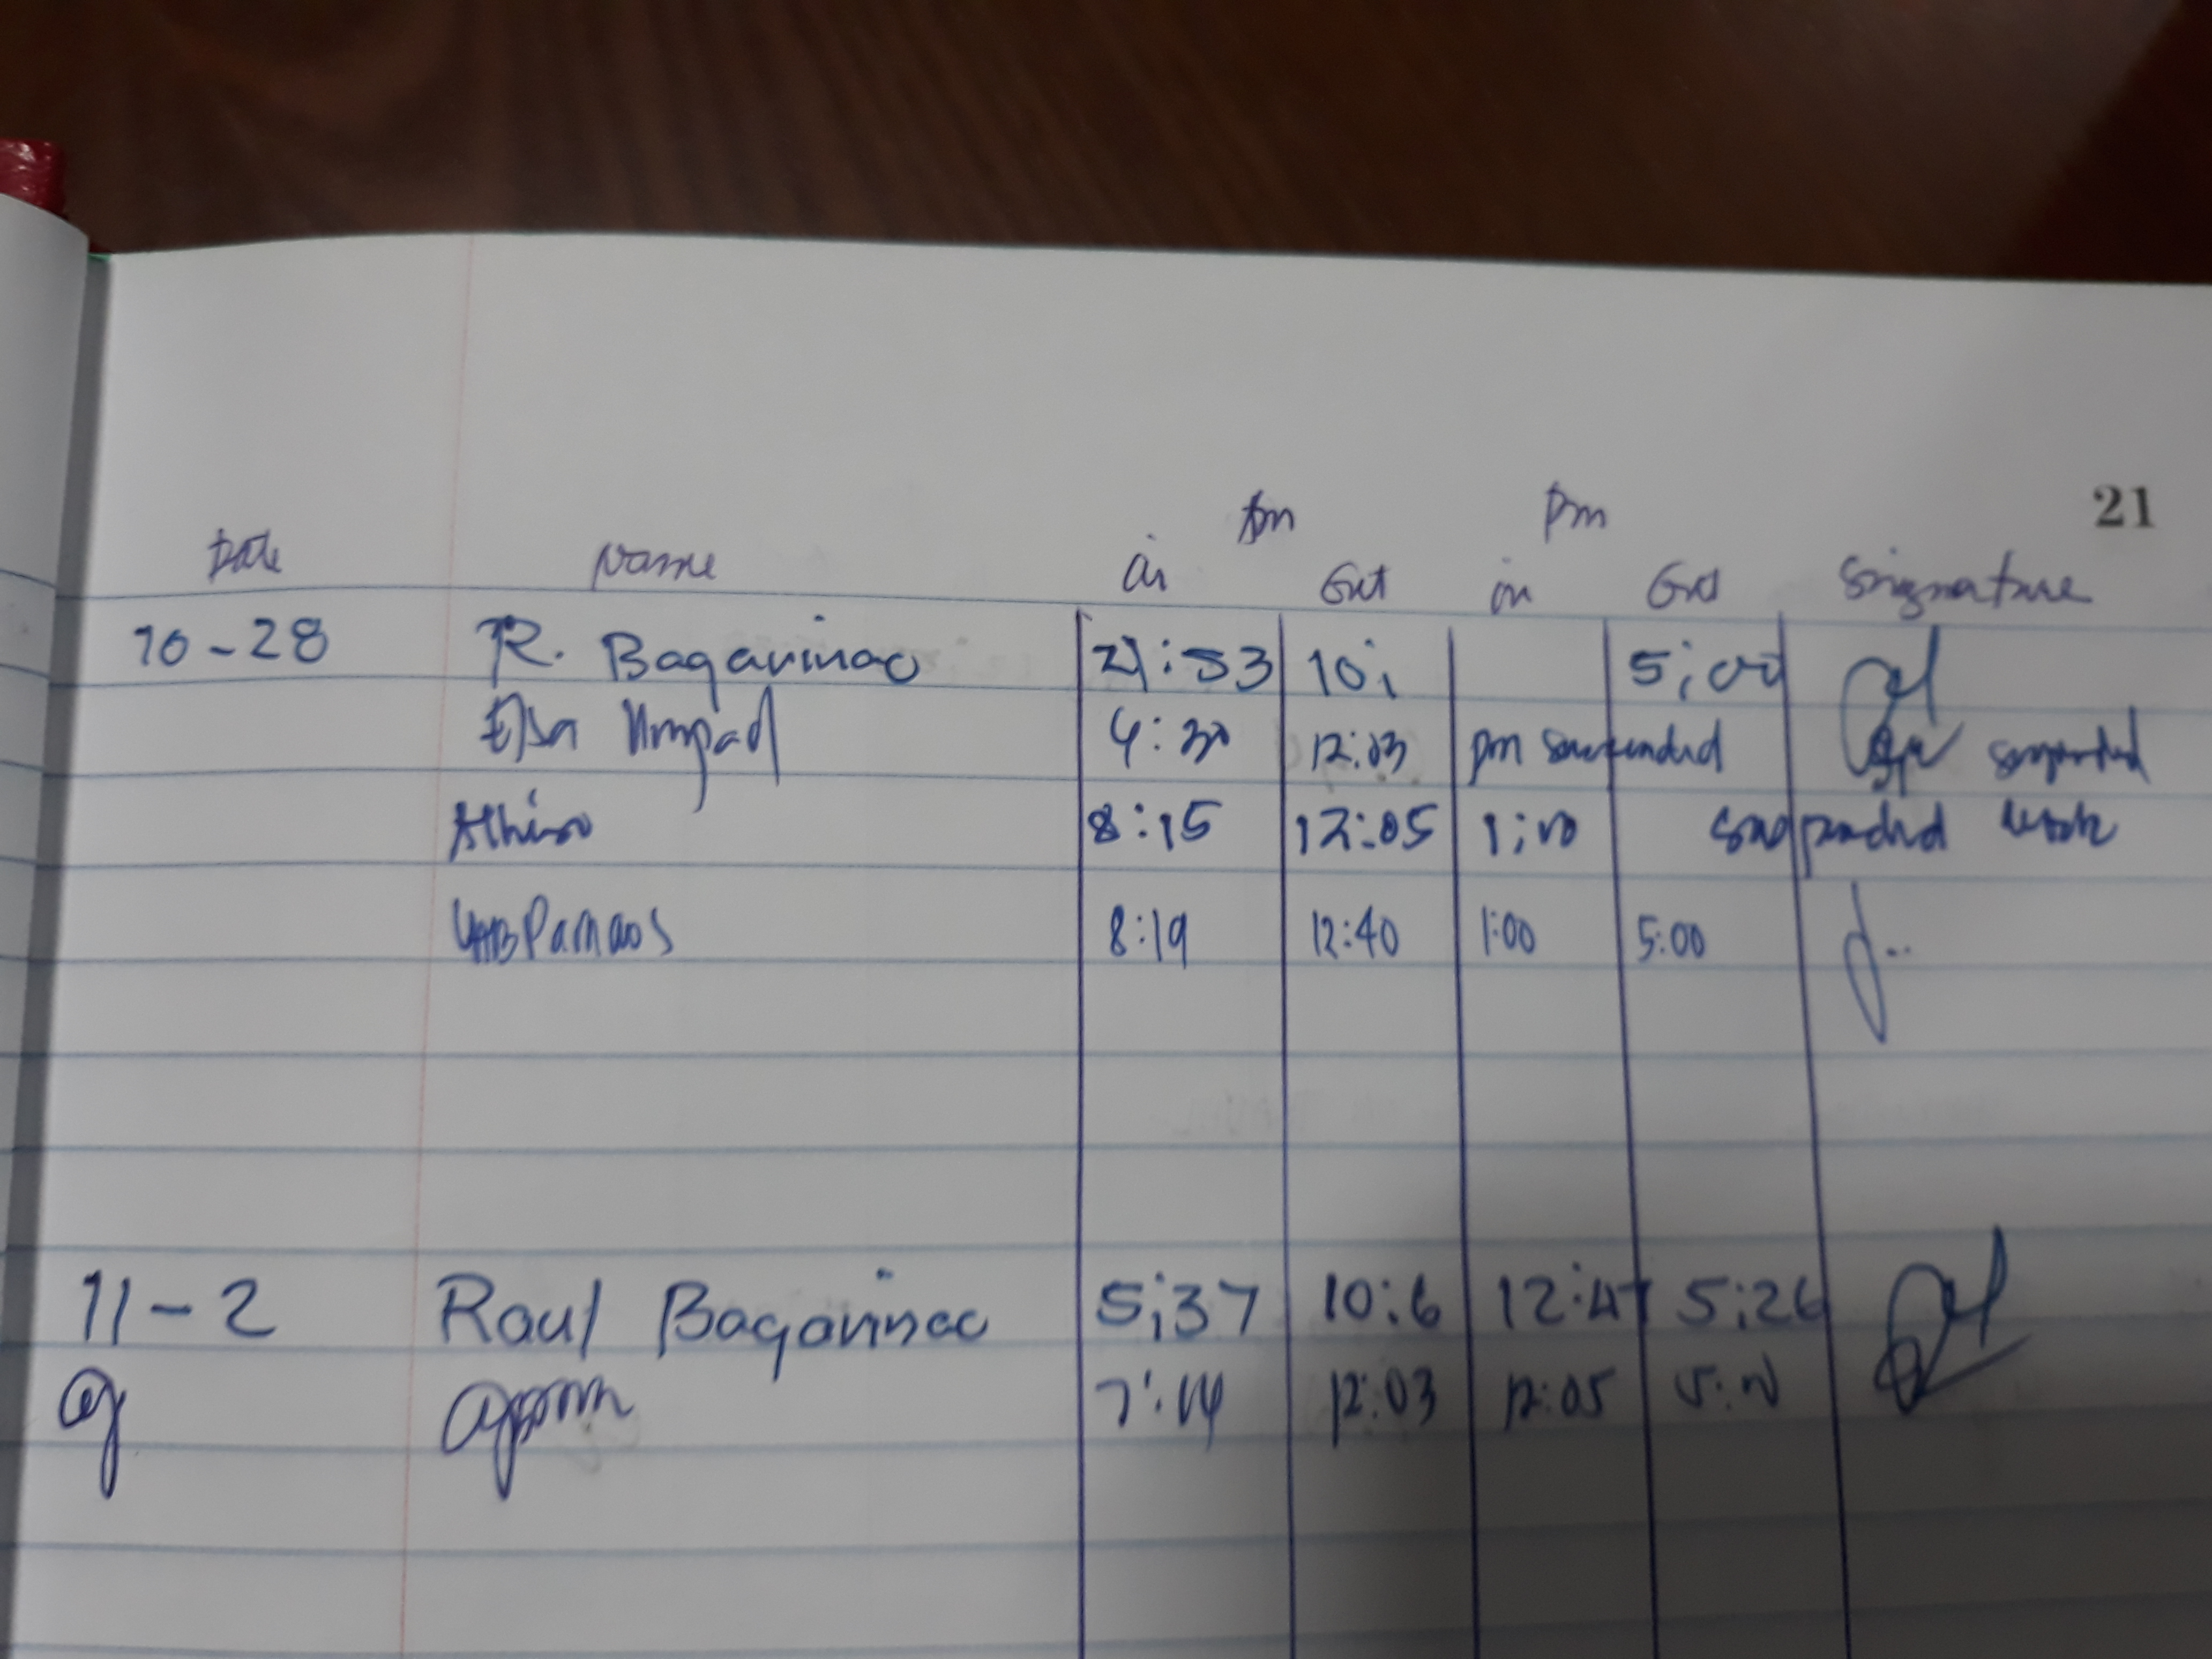 Am Pm 21
Date Name in Out in Out Signature
10-28 R. Bagarinao :53 10; 5;00
Elsa Umpad 4:30 12:03 pm suspended suspended
8:15 12:05 1;00 suspended work
8:19 12:40 1:00 5:00
11-2 Raul Bagarinao 5;37 10:6 12:47 5:26
7:14 12:03 12:05 5:00